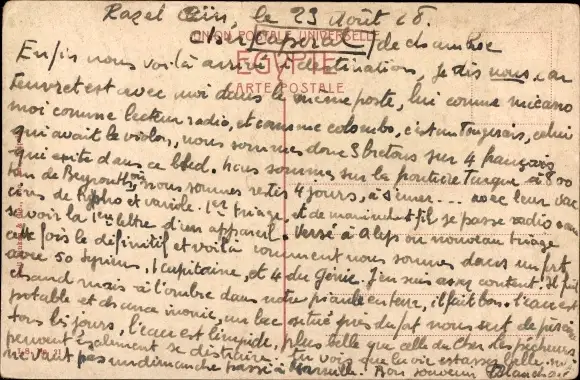 Razel Aïn, le 23 Août 28.
UNION POSTALE UNIVERSELLE
cher Caporal de chambre
EGYPTE
CARTE POSTALE
Enfin nous voilà arrivé à destination, je dis nous, car
est avec moi dans le même poste, lui comme mécano
moi comme lecteur radio, et comme colombo, c'est un Fougerais, celui
qui avait le violon, nous sommes donc 3 bretons sur 4 français
qui existe dans ce bled. nous sommes sur la frontière Turque à 800
Km de Beyrouth où nous sommes restés 4 jours, à s'amer... avec leur vac
cins de typho et variole. 1er triage, et de maintenant fil se passe radio sans
se voir la 1ère lettre d'un appareil. Versé à Alep ou nouveau triage
cette fois le définitif et voilà comment nous sommes dans un fort
avec 50 syriens, 1 capitaine, et 4 du Génie. J'en suis assez content. Il fait
chaud mais à l'ombre dans notre il fait bon. l'eau est
potable et chance inouïe, un lac situé près du fort nous sert de piscine
tous les jours, l'eau est limpide, plus belle que celle du Cher. les pêcheurs
peuvent également se distraire. Tu vois que la vie est assez belle.
vaut pas un dimanche passé à Bon souvenir Blanchard